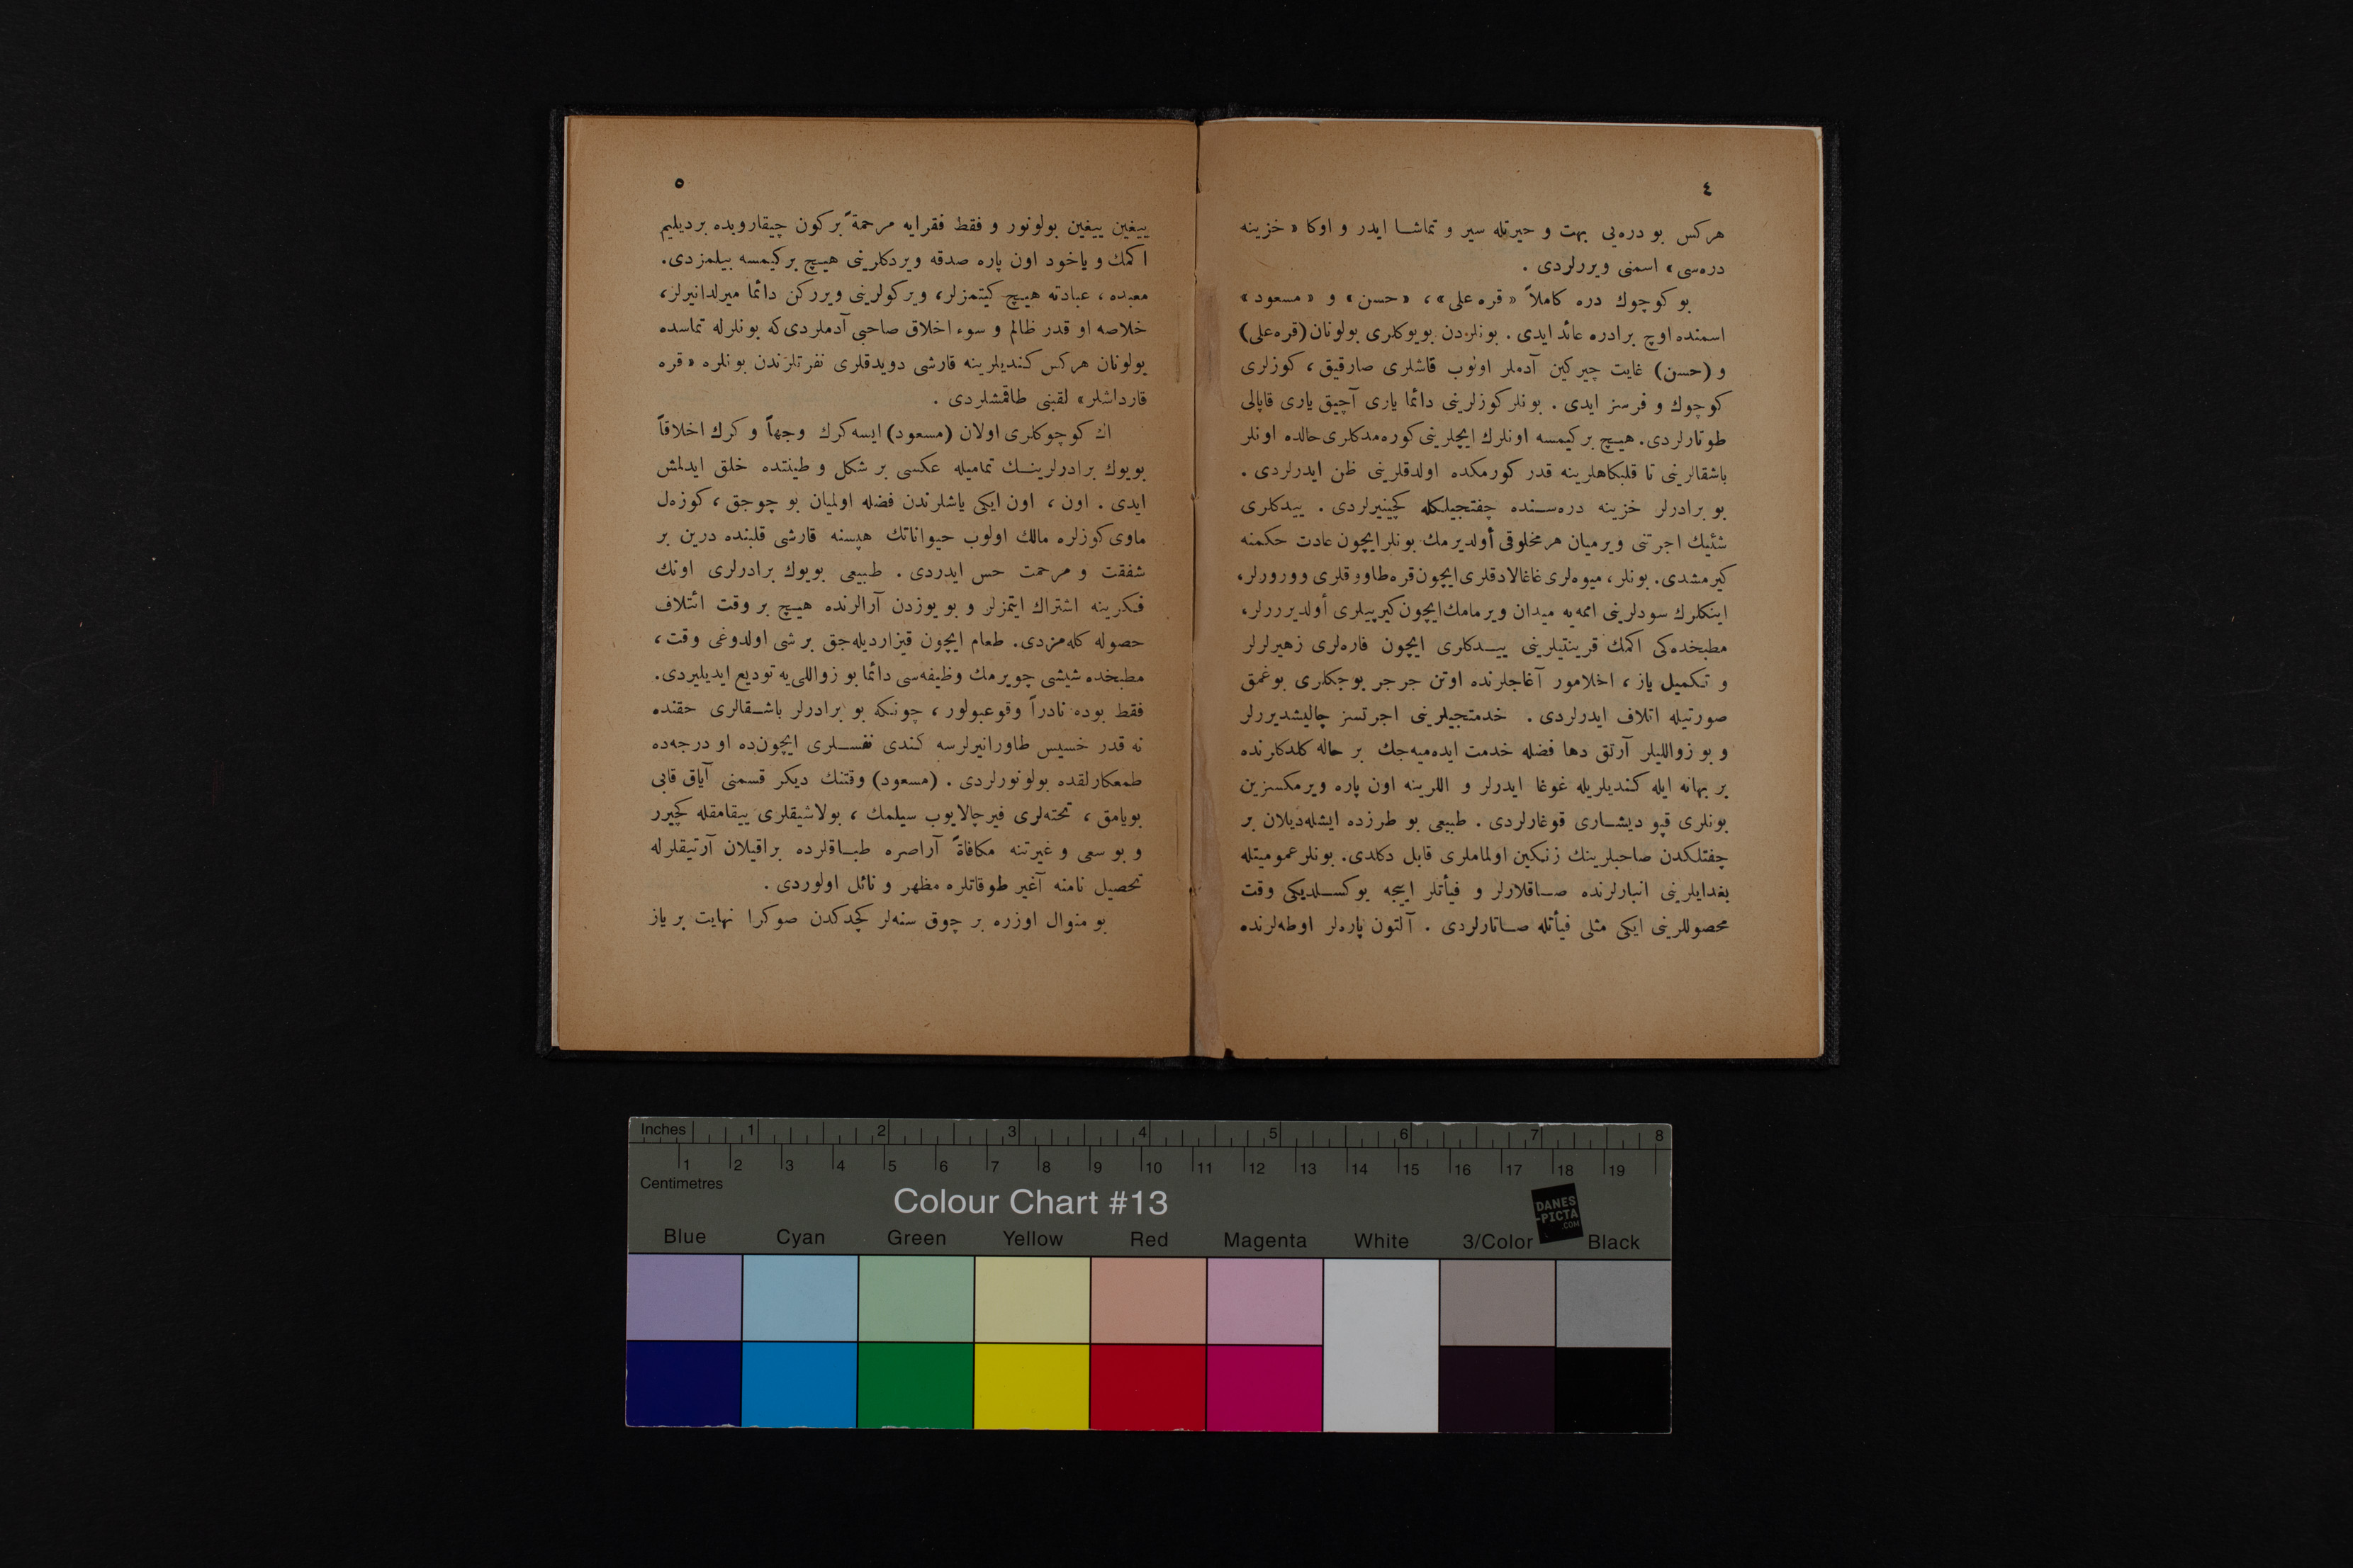 ٤
هركس بو دره‌یی بهت و حیرتله سیر و تماشـا ایدر و اوكا « خزینه
دره‌سی » اسمنی ویررلردی .
بو كوچوك دره كاملاً « قره علی » ، « حسن » و « مسعود »
اسمنده اوچ برادره عائد ایدی . بونلردن بویوكلری بولونان (قره علی)
و (حسن) غایت چیركین آدملر اولوب قاشلری صارقیق ، كوزلری
كوچوك و فرسز ایدی . بونلر كوزلرینی دائما یاری آچیق یاری قاپالی
طوتارلردی. هیـچ بر كیمسه اونلرك ایچلرینی كوره‌مدكلری حالده اونلر
باشقالرینی تا قلبكاهلرینه قدر كورمكده اولدقلرینی ظن ایدرلردی .
بو برادرلر خزینه دره‌سـنده چفتجیلكله كچینیرلردی . ییدكلری
شئیك اجرتنی ویرمیان هر مخلوقی أولدیرمك بونلر ایچون عادت حكمنه
كیرمشدی. بونلر ، میوه‌لری غاغالادقلری ایچون قره طاووقلری وورورلر،
اینكلرك سودلرینی اممه‌یه میدان ویرمامك ایچون كیرپیلری أولدیررلر،
مطبخده‌كی اكمك قرینتیلرینی ییـدكلری ایچون فاره‌لری زهیرلرلر
و تكمیل یاز ، اخلامور آغاجلرنده اوتن جرجر بوجكلری بوغمق
صورتیله اتلاف ایدرلردی . خدمتجیلرینی اجرتسز چالیشدیررلر
و بو زواللیلر آرتق دها فضله خدمت ایده‌میه‌جك بر حاله كلدكلرنده
بر بهانه ایله كندیلریله غوغا ایدرلر و اللرینه اون پاره ویرمكسزین
بونلری قپو دیشـاری قوغارلردی . طبیعی بو طرزده ایشله‌دیلان بر
چفتلكدن صاحبلرینك زنكین اولماملری قابل دكلدی. بونلر عمومیتله
بغدایلرینی انبارلرنده صـاقلارلر و فیأتلر اییجه یوكسـلدیكی وقت
محصوللرینی ایكی مثلی فیأتله صـاتارلردی . آلتون پاره‌لر اوطه‌لرنده
٥
ییغین ییغین بولونور و فقط فقرایه مرحمةً بركون چیقاروبده بردیلیم
اكمك و یاخود اون پاره صدقه ویردكلرینی هیـچ بر كیمسه بیلمزدی.
معبده ، عبادته هیـچ كیتمزلر، ویركولرینی ویرركن دائما میرلدانیرلر،
خلاصه او قدر ظالم و سوء اخلاق صاحبی آدملردی كه بونلرله تماسده
بولونان هركس كندیلرینه قارشی دویدقلری نفرتلرندن بونلره « قره
قارداشلر » لقبنی طاقمشلردی .
اك كوچوكلری اولان (مسعود) ایسه كرك وجهاً و كرك اخلاقاً
بویوك برادرلرینـك تمامیله عكسی بر شكل و طینتده خلق ایدلمش
ایدی . اون ، اون ایكی یاشلرندن فضله اولمیان بو چوجق ، كوزه‌ل
ماوی كوزلره مالك اولوب حیواناتك هپسنه قارشی قلبنده درین بر
شفقت و مرحمت حس ایدردی . طبیعی بویوك برادرلری اونك
فكرینه اشتراك ایتمزلر و بو یوزدن آرالرنده هیـچ بر وقت ائتلاف
حصوله كله‌مزدی. طعام ایچون قیزاردیله‌جق بر شی اولدوغی وقت ،
مطبخده شیشی چویرمك وظیفه‌سی دائما بو زواللی‌یه تودیع ایدیلیردی.
فقط بوده نادراً وقوعبولور ، چونكه بو برادرلر باشـقالری حقنده
نه قدر خسیس طاورانیرلرسه كندی نفسـلری ایچون‌ده او درجه‌ده
طمعكارلقده بولونورلردی . (مسعود) وقتنك دیكر قسمنی آیاق قابی
بویامق ، تخته‌لری فیرچالایوب سیلمك ، بولاشیقلری ییقامقله كچیرر
و بو سعی و غیرتنه مكافاةً آراصره طبـاقلرده براقیلان آرتیقلرله
تحصیل نامنه آغیر طوقاتلره مظهر و نائل اولوردی .
بو منوال اوزره بر چوق سنه‌لر كچدكدن صوكرا نهایت بر یاز
Inches 1 2 3 4 5 6 7 8
1 2 3 4 5 6 7 8 9 10 11 12 13 14 15 16 17 18 19
Centimetres
Colour Chart #13
DANES
-PICTA
.COM
Blue Cyan Green Yellow Red Magenta White 3/Color Black